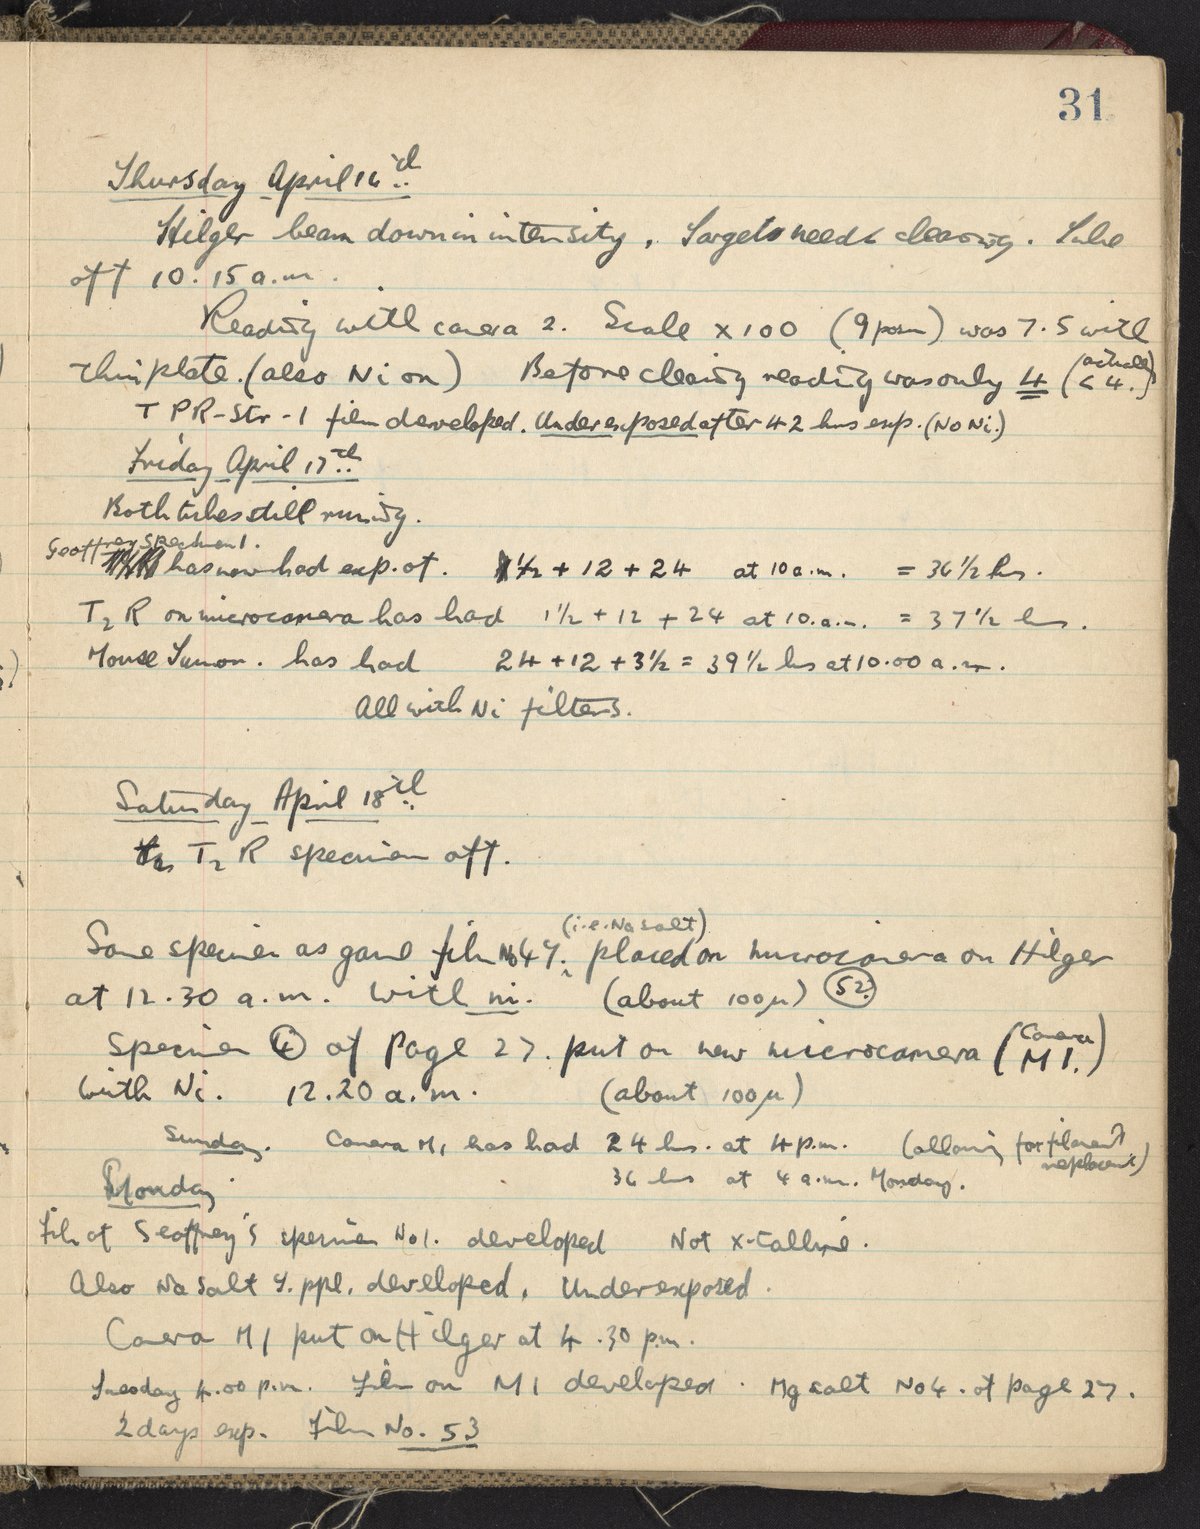 31
Thursday April 16th
Hilger beam down in intensity, Targets needs cleaning. Tube
off 10.15 a.m.
Reading with camera 2. Scale x 100 (9 p.m) was 7.5 with
thin plate. (also Ni on) Before cleaning reading was only 4 (actually < 4.)
T PR-Str-1 film developed. Underexposed after 42 hrs exp. (No Ni.)
Friday April 17th
Both tubes still running.
Geoffrey Specimen 1.
has now had exp. of. 1/2 + 12 + 24 at 10 a.m. = 36 1/2 hrs.
T2 R on microcamera has had 1 1/2 + 12 + 24 at 10. a.m. = 37 1/2 hrs.
Mouse Tumor. has had 24 + 12 + 3 1/2 = 39 1/2 hrs at 10.00 a.m.
All with Ni filters.
Saturday April 18th
T2 R specimen off.
(i.e. Na salt)
Same specimen as gave film No 49. placed on microcamera on Hilger
at 12.30 a.m. with ni. (about 100μ) 52.
Specimen 4 of Page 27. put on new microcamera (Camera M 1.)
with Ni. 12.20 a.m. (about 100μ)
Sunday. Camera M1 has had 24 hrs. at 4 p.m. (allowing for filament replacement)
36 hrs at 4 a.m. Monday.
Monday
Film of Geoffrey's specimen No 1. developed Not x-talline.
Also Na Salt Y. ppt. developed, Underexposed.
Camera M1 put on Hilger at 4.30 p.m.
Tuesday 4.00 p.m. Film on M1 developed. Mg salt No 4. of page 27.
2 days exp. Film No. 53